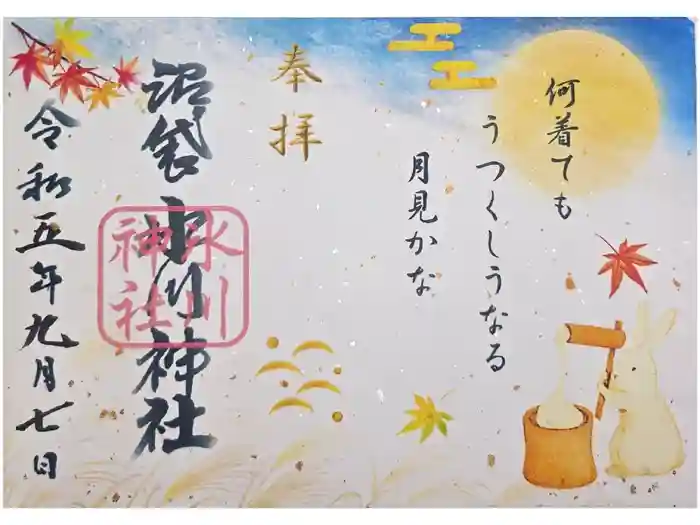 何着ても
うつくしうなる
月見かな
奉拝
沼袋氷川神社
氷川
神社
令和五年九月七日